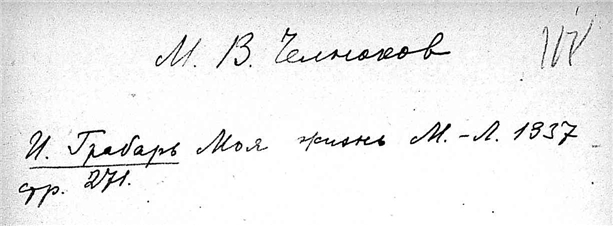 М. В. Челноков
И. Грабарь Моя жизнь М.-Л. 1937
стр. 271.